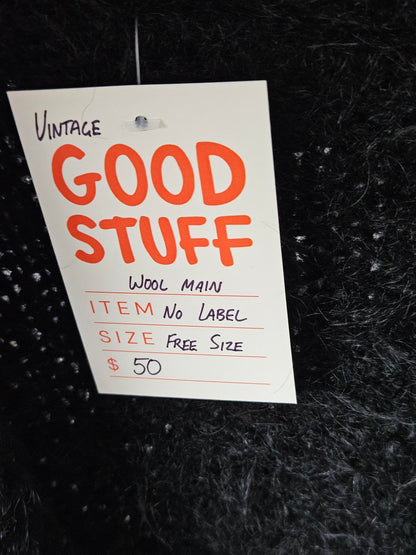 VINTAGE
GOOD
STUFF
WOOL MAIN
ITEM NO LABEL
SIZE FREE SIZE
$ 50